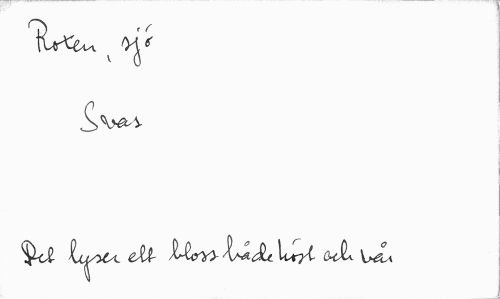 Roxen, sjö
Svas
Det lyser ett bloss både höst och vår